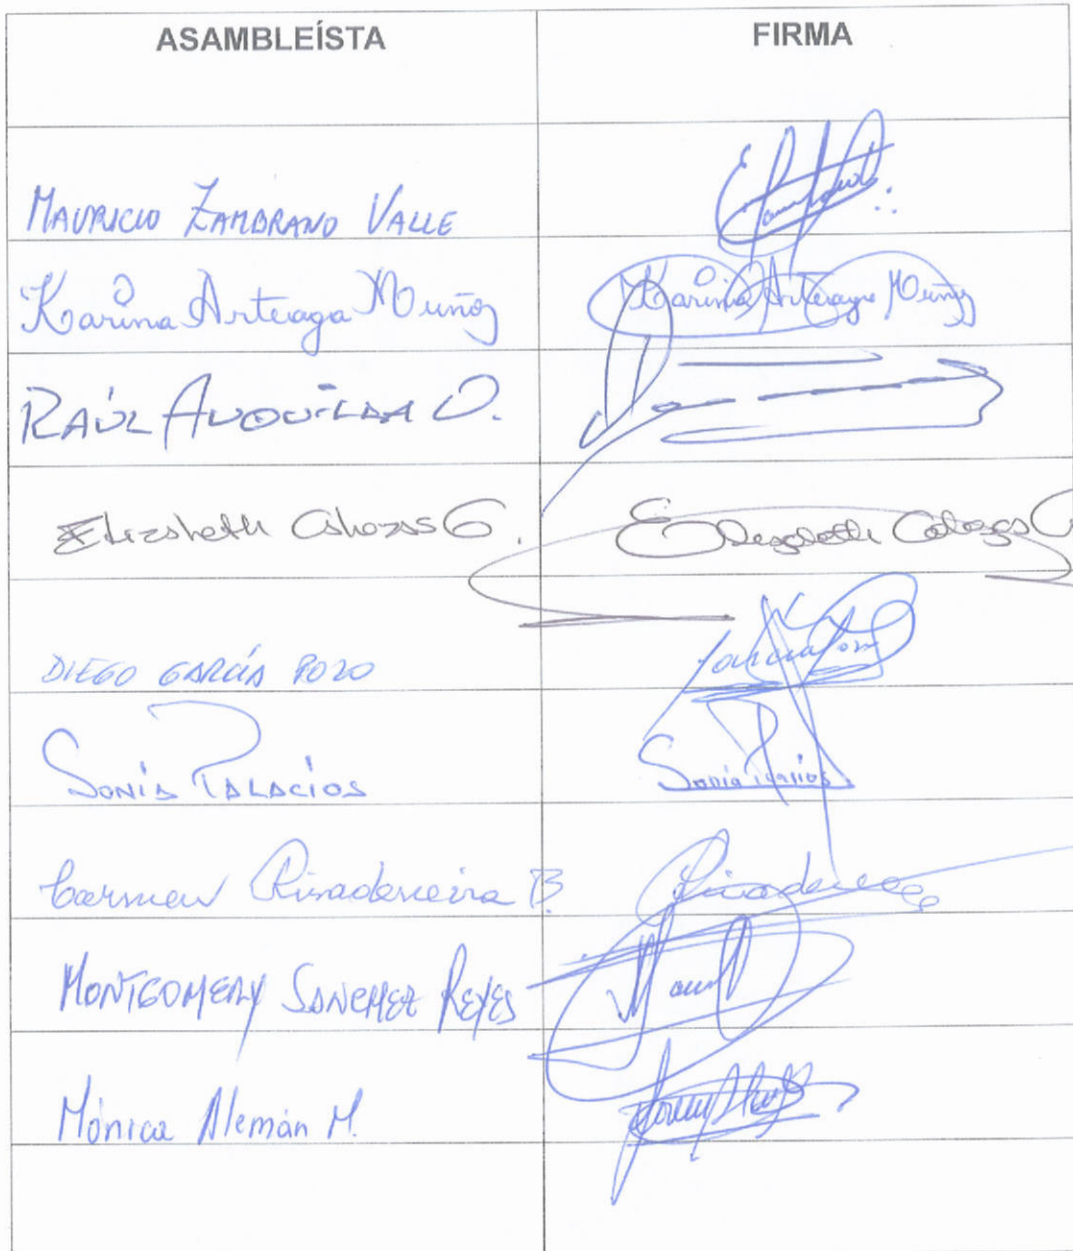 ASAMBLEÍSTA FIRMA
MAURICIO ZAMBRANO VALLE
Karina Arteaga Muñoz Karina Arteaga Muñoz
RAÚL AUQUILLA O.
Elizabeth Cabezas G. Elizabeth Cabezas G
DIEGO GARCÍA POZO
SONIA PALACIOS Sonia Palacios
Carmen Rivadeneira B. Rivadeneira
MONTGOMERY SANCHEZ REYES
Mónica Alemán M.